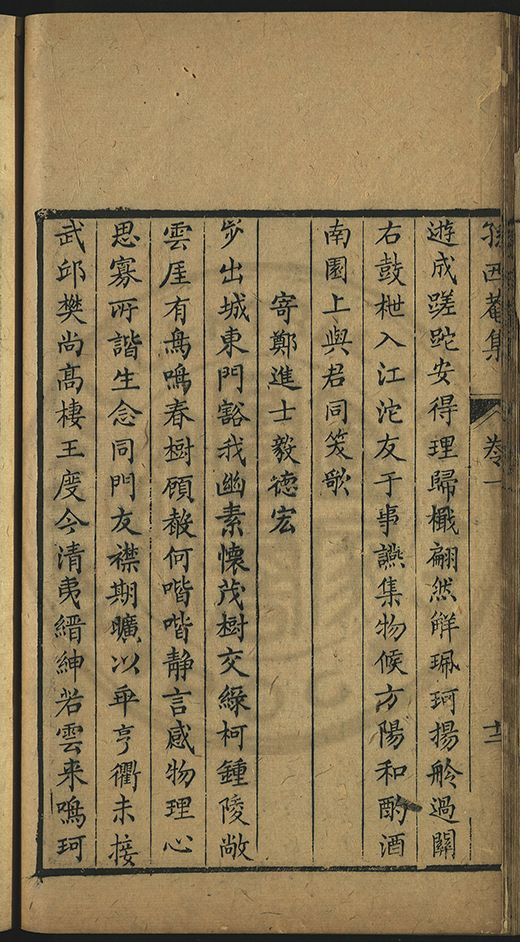 孫西菴集 卷一 十二
遊成蹉跎安得理歸檝翩然觧珮珂揚舲過關
右鼓枻入江沱友于事讌集物候方陽和酌酒
南園上與君同笑歌
寄鄭進士毅德宏
步出城東門豁我幽素懷茂樹交綠柯鍾陵敞
雲厓有鳥鳴春樹頋聲何喈喈静言感物理心
思寡所諧生念同門友襟期曠以乖亨衢未接
武邱樊尚高棲王度今清夷縉紳若雲来鳴珂